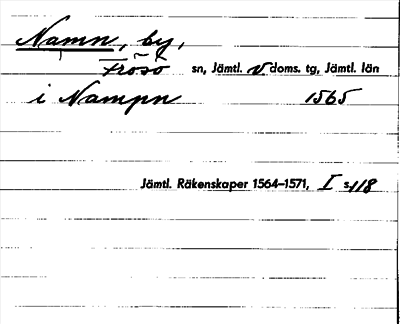 Namn, by,
Frösö sn, Jämtl. v doms. tg, Jämtl. län
i Nampn 1565
Jämtl. Räkenskaper 1564–1571, I s. 118